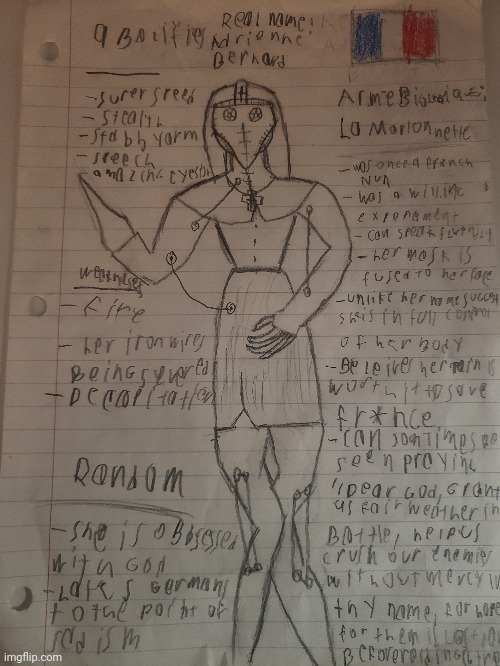 Real name:
Adrienne
Bernard
abolities
- super speed
- Stealth
- Stabby arm
- speech
- amazing eyesight
weaknesses
- Fire
- her iron wires
Being severed
- Decapitation
Random
- she is obsessed
with God
- hates Germans
to the point of
sadism
La Marionnette
- was once a French
Nun
- was a willing
experament
- can speak fluently
- her mask is
fused to her face
- unlike her name suggest
she is in full control
of her body
worth it to save
fr*nce
- can somtimes be
seen praying
"Dear God, Grant
us fair weather in
Battle, help us
crush our enemies
without mercy in
thy name, for hope
for them is lost
imgflip.com